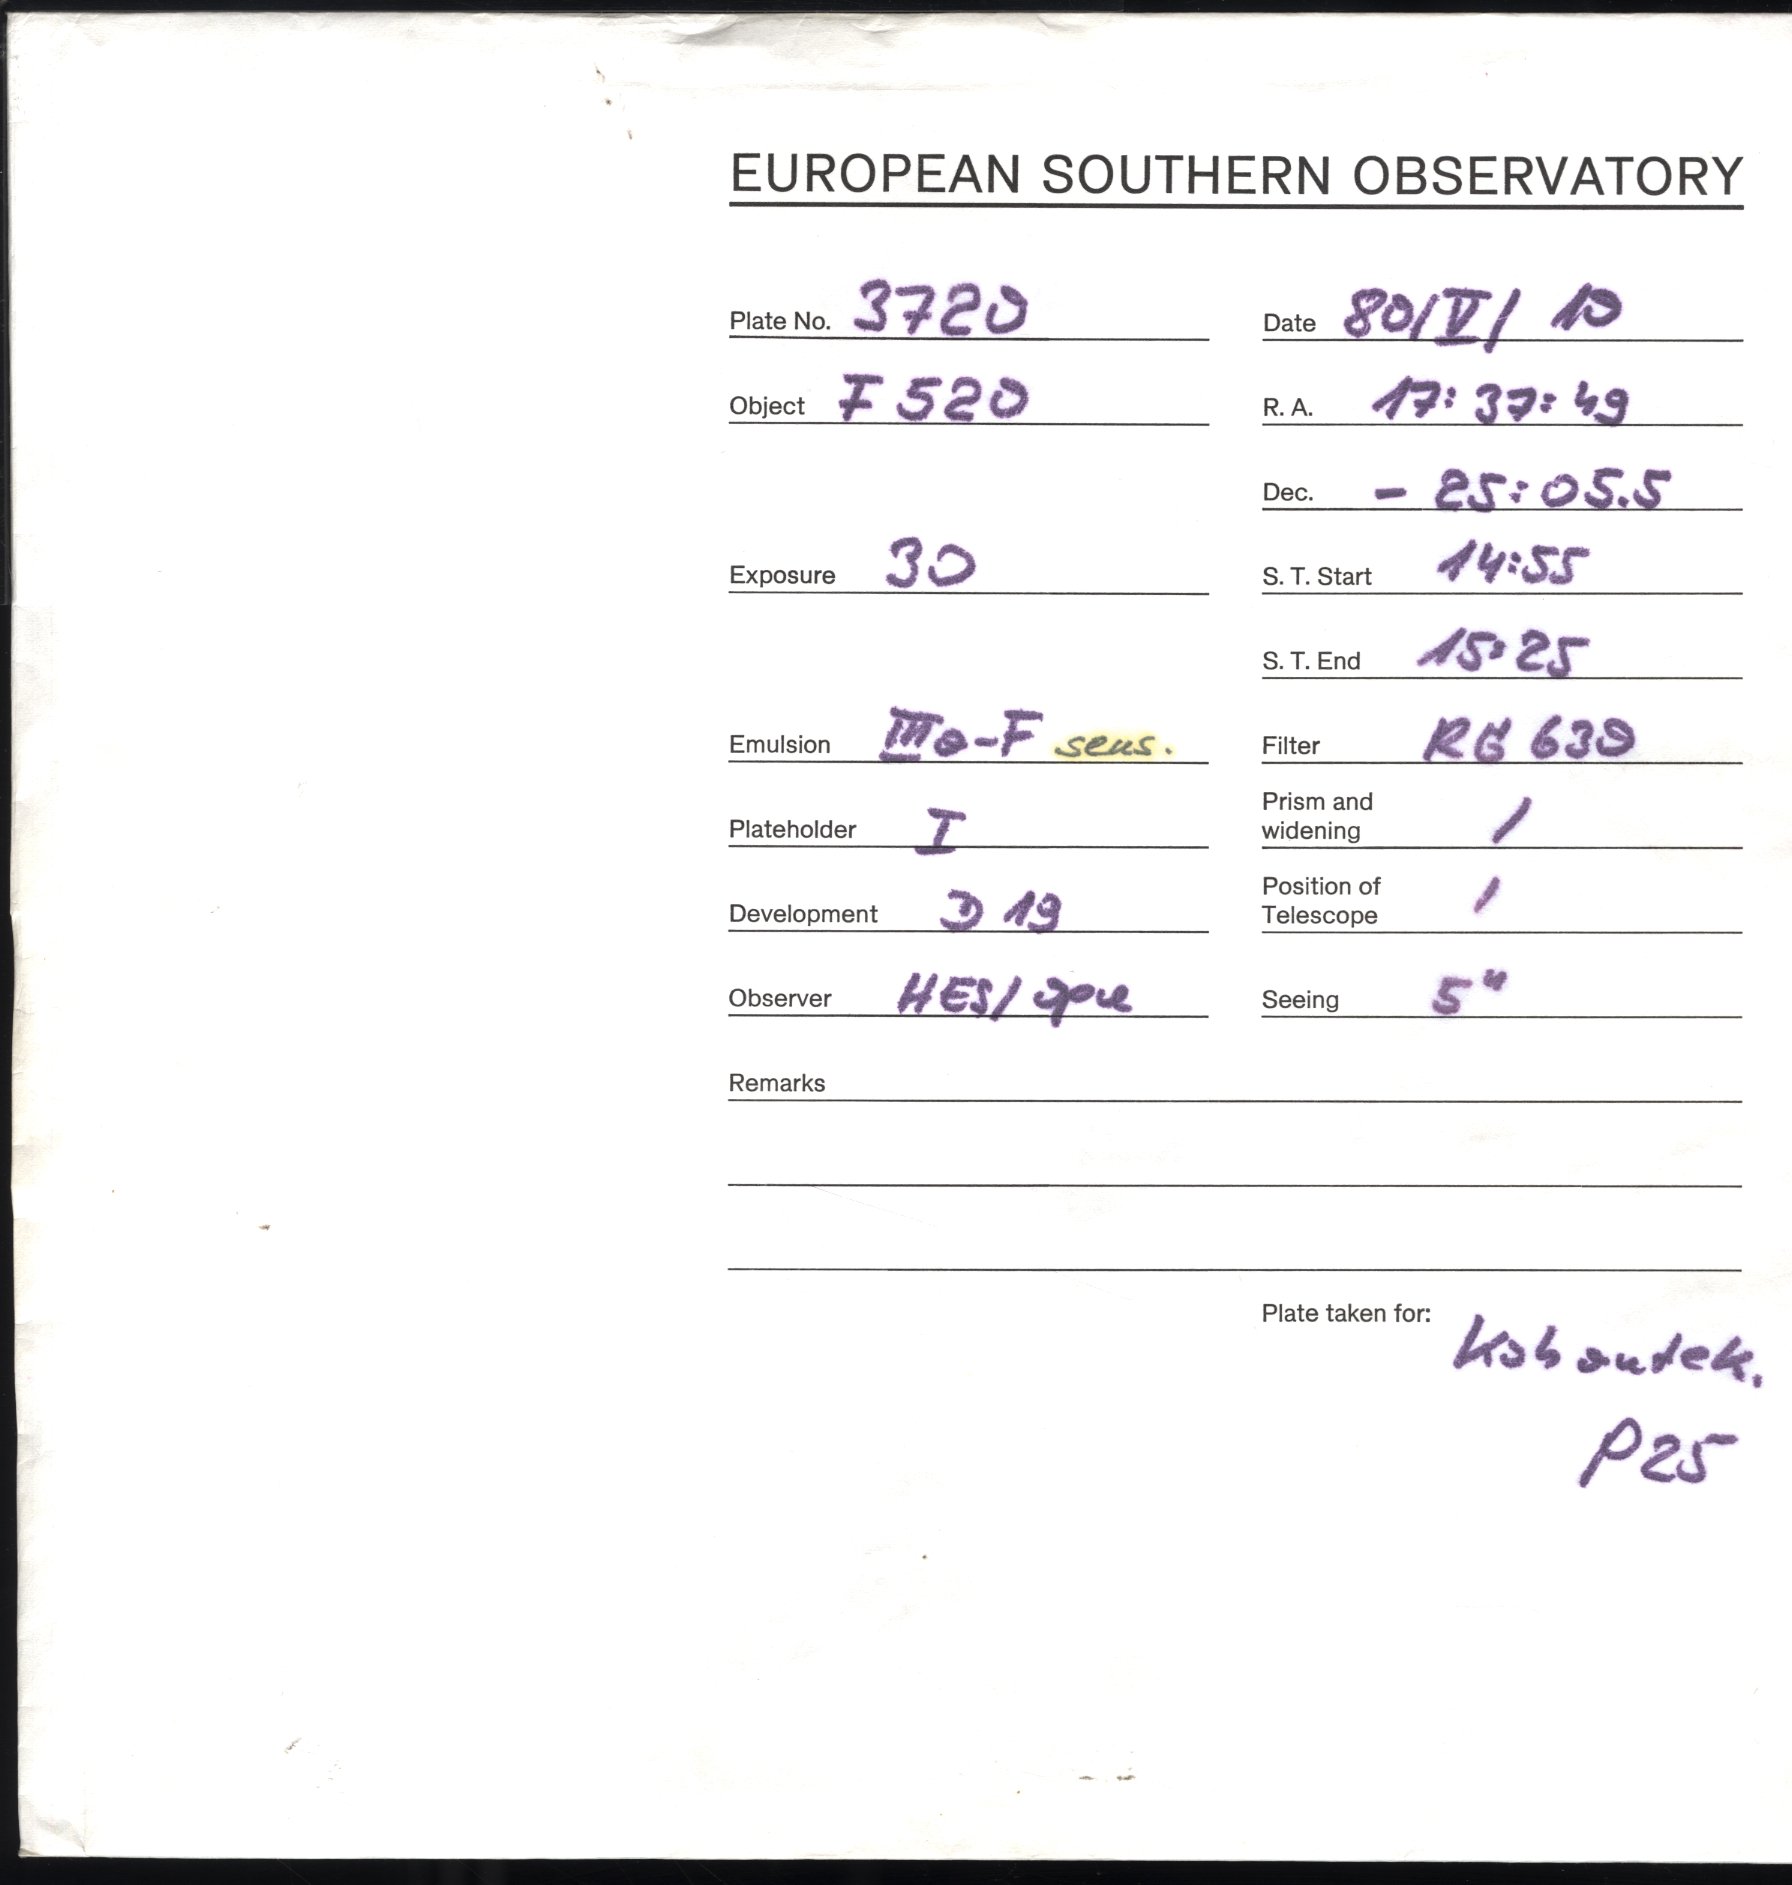 EUROPEAN SOUTHERN OBSERVATORY
Plate No. 3720
Date 80/V/ 10
Object F 520
R. A. 17:37:49
Dec. - 25:05.5
Exposure 30
S. T. Start 14:55
S. T. End 15:25
Emulsion IIIa-F sens.
Filter RG 630
Plateholder I
Prism and widening /
Development D 19
Position of Telescope /
Observer HES/
Seeing 5"
Remarks
Plate taken for: Kohoutek.
P25